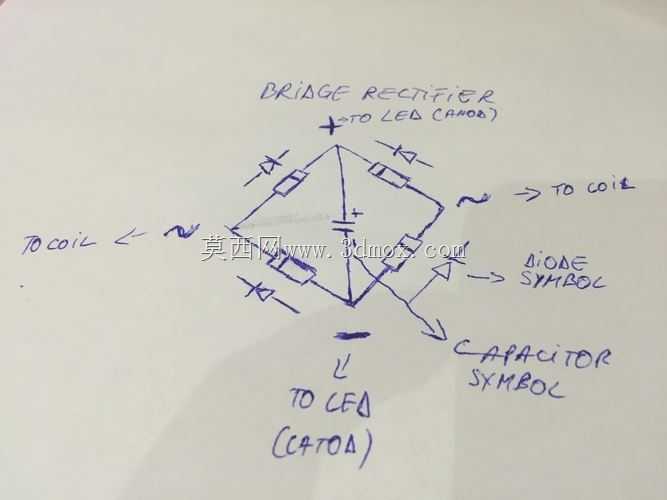 BRIDGE RECTIFIER
+ → TO LED (ANOD)
~ → TO COIL
TO COIL ← ~
+
莫西网www.3dmox.com
DIODE
SYMBOL
CAPACITOR
SYMBOL
−
TO LED
(CATOD)